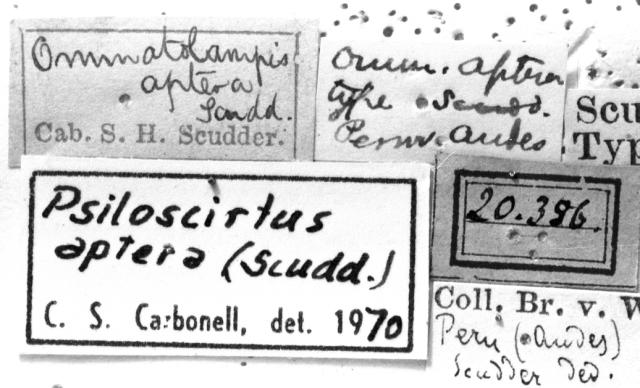 Ommatolampis
aptera
Scudd.
Cab. S. H. Scudder.
Omm. aptera
type Scudd.
Peruv. Andes
Scu
Typ
Psiloscirtus
aptera (Scudd.)
C. S. Carbonell, det. 1970
20.386.
Coll. Br. v. W
Peru (Andes)
Scudder ded.